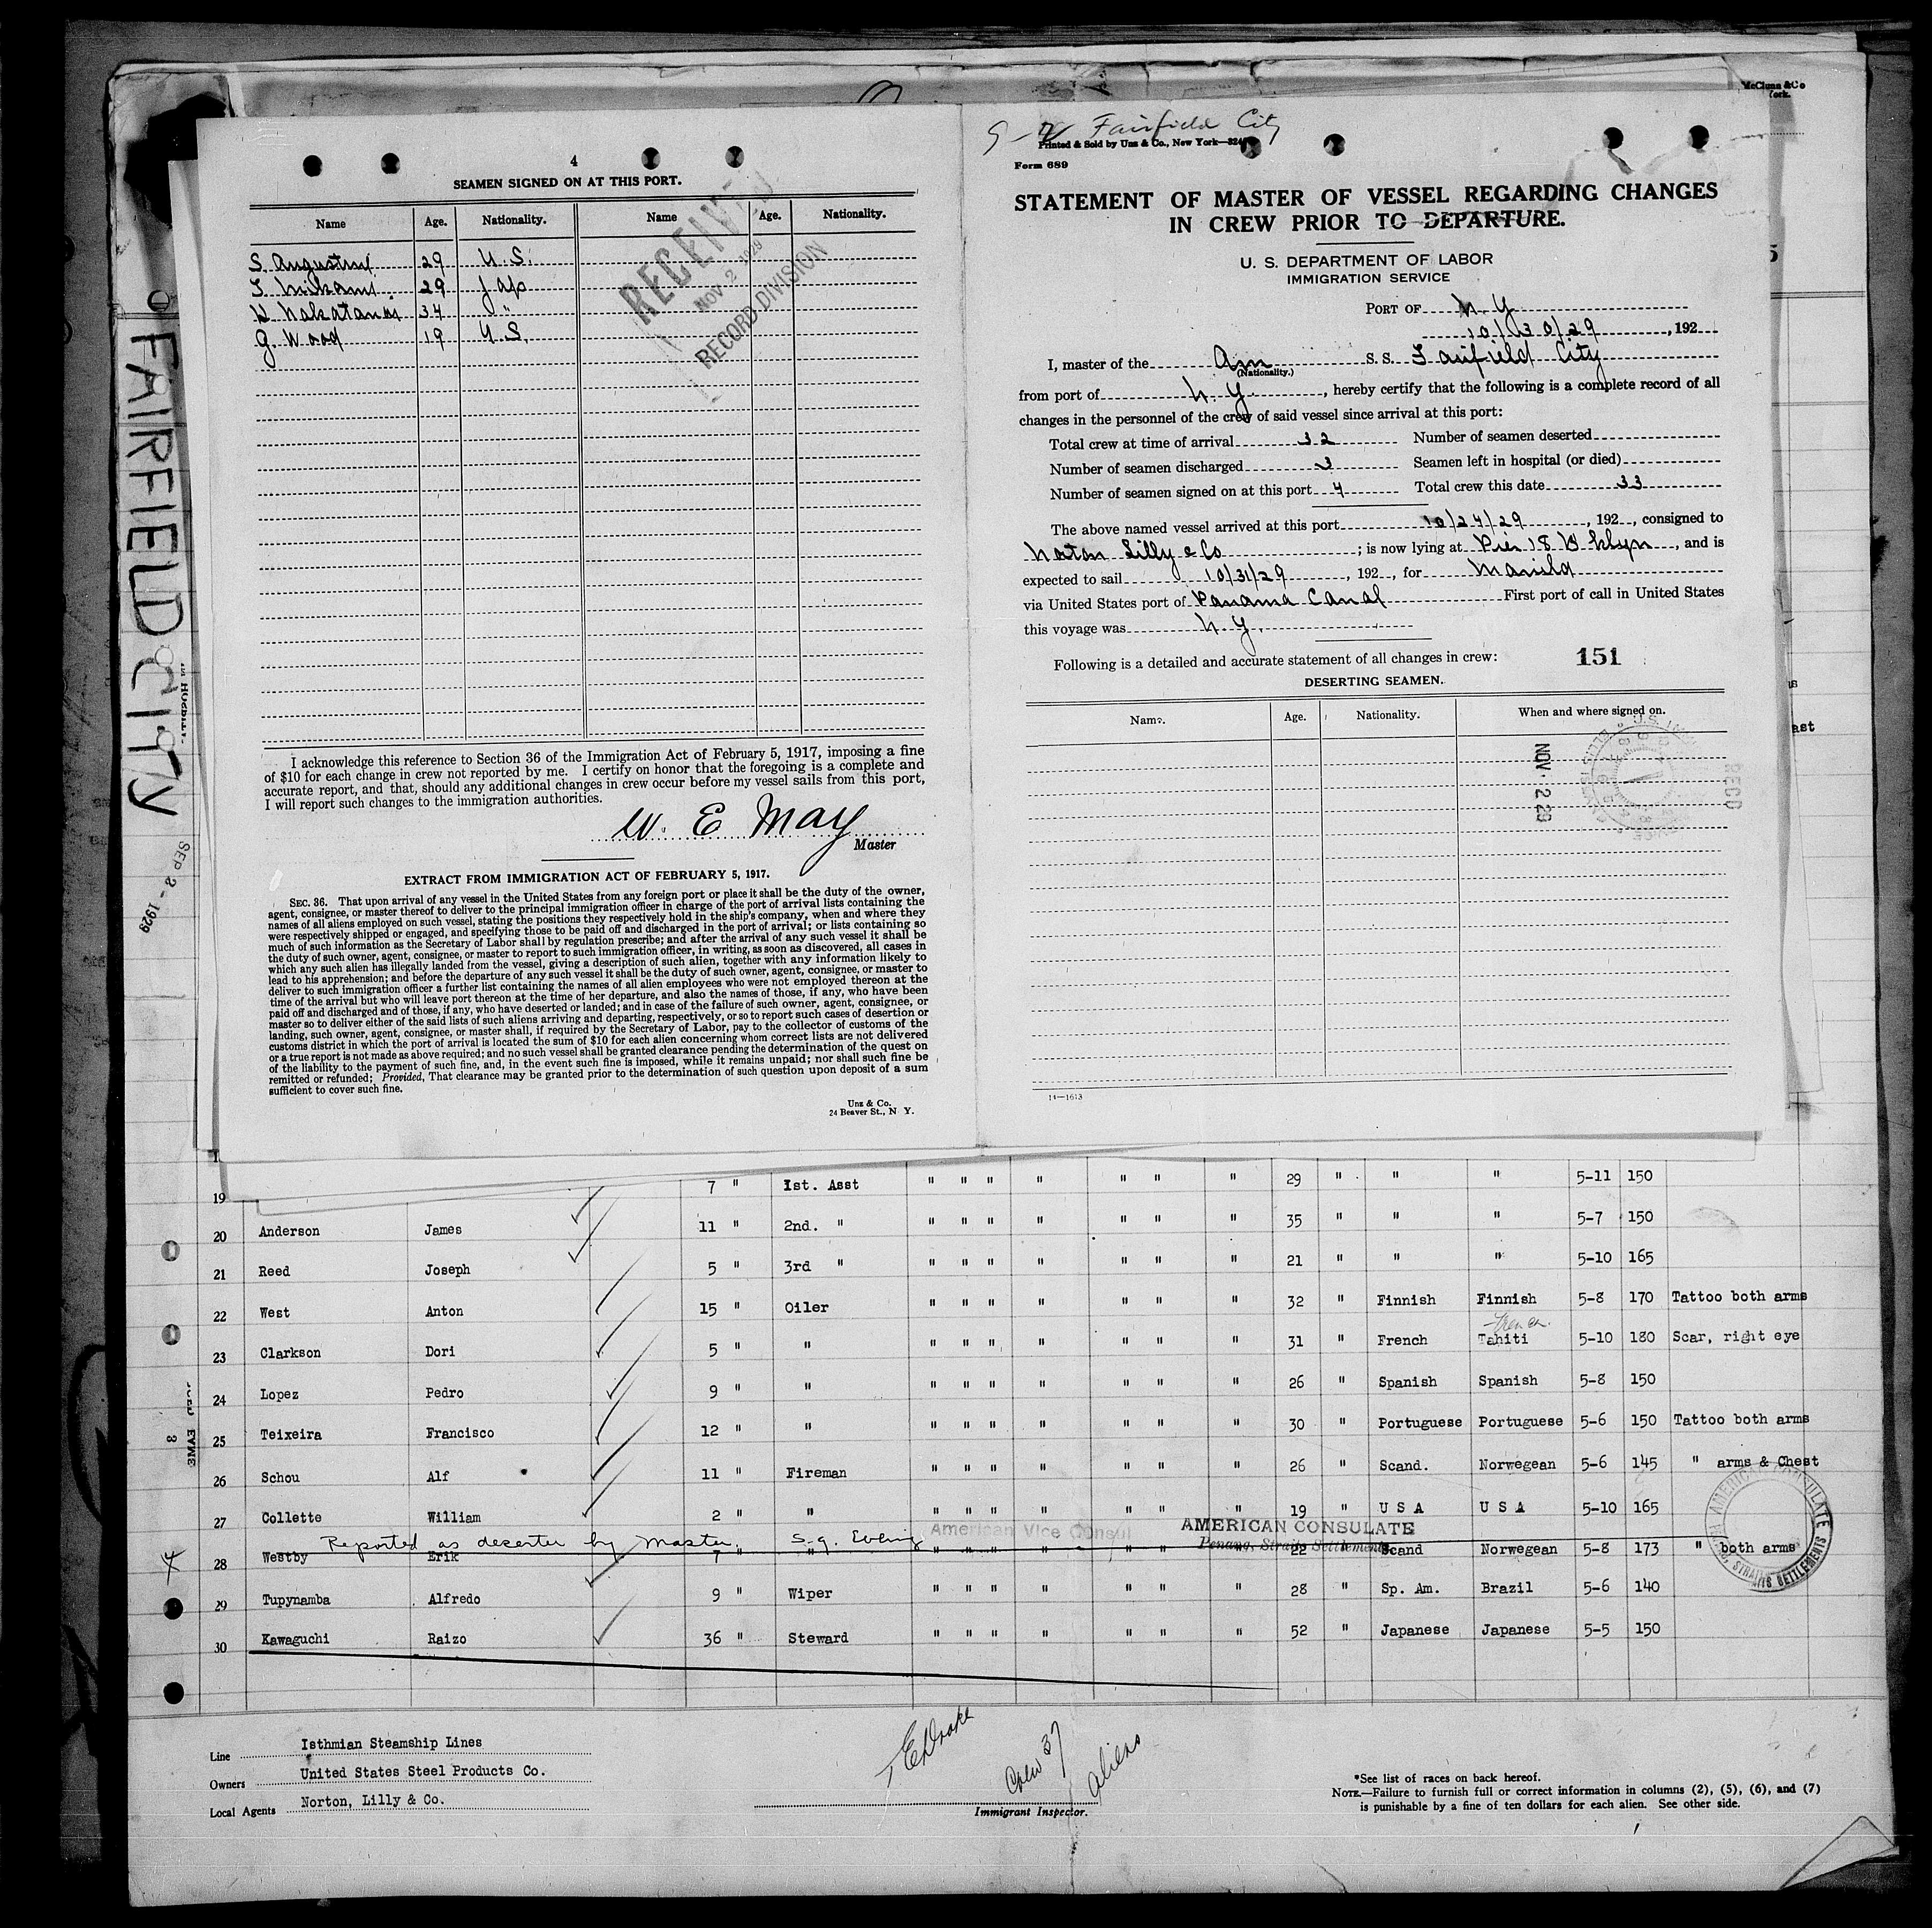 McClunn & Co
York.
FAIRFIELD CITY
SEP 3 - 1929
4
SEAMEN SIGNED ON AT THIS PORT.
Name Age. Nationality. Name Age. Nationality.
S. Augustine 29 U.S.
29 Jap
34 "
G. Wood 19 U.S.
RECEIVED
NOV 2 1929
RECORD DIVISION
I acknowledge this reference to Section 36 of the Immigration Act of February 5, 1917, imposing a fine
of $10 for each change in crew not reported by me. I certify on honor that the foregoing is a complete and
accurate report, and that, should any additional changes in crew occur before my vessel sails from this port,
I will report such changes to the immigration authorities.
W. E May
Master
EXTRACT FROM IMMIGRATION ACT OF FEBRUARY 5, 1917.
SEC. 36. That upon arrival of any vessel in the United States from any foreign port or place it shall be the duty of the owner,
agent, consignee, or master thereof to deliver to the principal immigration officer in charge of the port of arrival lists containing the
names of all aliens employed on such vessel, stating the positions they respectively hold in the ship's company, when and where they
were respectively shipped or engaged, and specifying those to be paid off and discharged in the port of arrival; or lists containing so
much of such information as the Secretary of Labor shall by regulation prescribe; and after the arrival of any such vessel it shall be
the duty of such owner, agent, consignee, or master to report to such immigration officer, in writing, as soon as discovered, all cases in
which any such alien has illegally landed from the vessel, giving a description of such alien, together with any information likely to
lead to his apprehension; and before the departure of any such vessel it shall be the duty of such owner, agent, consignee, or master to
deliver to such immigration officer a further list containing the names of all alien employees who were not employed thereon at the
time of the arrival but who will leave port thereon at the time of her departure, and also the names of those, if any, who have been
paid off and discharged and of those, if any, who have deserted or landed; and in case of the failure of such owner, agent, consignee, or
master so to deliver either of the said lists of such aliens arriving and departing, respectively, or so to report such cases of desertion or
landing, such owner, agent, consignee, or master shall, if required by the Secretary of Labor, pay to the collector of customs of the
customs district in which the port of arrival is located the sum of $10 for each alien concerning whom correct lists are not delivered
or a true report is not made as above required; and no such vessel shall be granted clearance pending the determination of the quest on
of the liability to the payment of such fine, and, in the event such fine is imposed, while it remains unpaid; nor shall such fine be
remitted or refunded; Provided, That clearance may be granted prior to the determination of such question upon deposit of a sum
sufficient to cover such fine.
Unz & Co.
24 Beaver St., N Y.
Fairfield City
Printed & Sold by Unz & Co., New York—324
Form 689
STATEMENT OF MASTER OF VESSEL REGARDING CHANGES
IN CREW PRIOR TO DEPARTURE.
U. S. DEPARTMENT OF LABOR
IMMIGRATION SERVICE
PORT OF N.Y.
10/30/29, 192
I, master of the Am S. S. Fairfield City
(Nationality.)
from port of N.Y., hereby certify that the following is a complete record of all
changes in the personnel of the crew of said vessel since arrival at this port:
Total crew at time of arrival 32 Number of seamen deserted
Number of seamen discharged 3 Seamen left in hospital (or died)
Number of seamen signed on at this port 4 Total crew this date 33
The above named vessel arrived at this port 10/24/29, 192, consigned to
Norton Lilly & Co; is now lying at Pier 18 Bklyn, and is
expected to sail 10/31/29, 192, for Manila
via United States port of Panama Canal First port of call in United States
this voyage was N.Y.
Following is a detailed and accurate statement of all changes in crew: 151
DESERTING SEAMEN.
Name. Age. Nationality. When and where signed on.
NOV 2 29
RECD
14—1613
19 7 " 1st. Asst " " " " " " " 29 " " " 5-11 150
20 Anderson James 11 " 2nd. " " " " " " " " 35 " " " 5-7 150
21 Reed Joseph 5 " 3rd " " " " " " " " 21 " " " 5-10 165
22 West Anton 15 " Oiler " " " " " " " 32 " Finnish Finnish 5-8 170 Tattoo both arms
French
23 Clarkson Dori 5 " " " " " " " " " 31 " French Tahiti 5-10 180 Scar, right eye
24 Lopez Pedro 9 " " " " " " " " " 26 " Spanish Spanish 5-8 150
25 Teixeira Francisco 12 " " " " " " " " " 30 " Portuguese Portuguese 5-6 150 Tattoo both arms
26 Schou Alf 11 " Fireman " " " " " " " 26 " Scand. Norwegean 5-6 145 " arms & Chest
27 Collette William 2 " " " " " " " " " 19 " U S A U S A 5-10 165
Reported as deserter by Master.
American Vice Consul
AMERICAN CONSULATE
Penang, Straits Settlements
28 Westby Erik 7 " " " " " " " " " 22 " Scand Norwegean 5-8 173 " both arms
29 Tupynamba Alfredo 9 " Wiper " " " " " " " 28 " Sp. Am. Brazil 5-6 140
30 Kawaguchi Raizo 36 " Steward " " " " " " " 52 " Japanese Japanese 5-5 150
AMERICAN CONSULATE
STRAITS SETTLEMENTS
Line Isthmian Steamship Lines
Owners United States Steel Products Co.
Local Agents Norton, Lilly & Co.
Crew 37
aliens
Immigrant Inspector.
*See list of races on back hereof.
NOTE.—Failure to furnish full or correct information in columns (2), (5), (6), and (7)
is punishable by a fine of ten dollars for each alien. See other side.